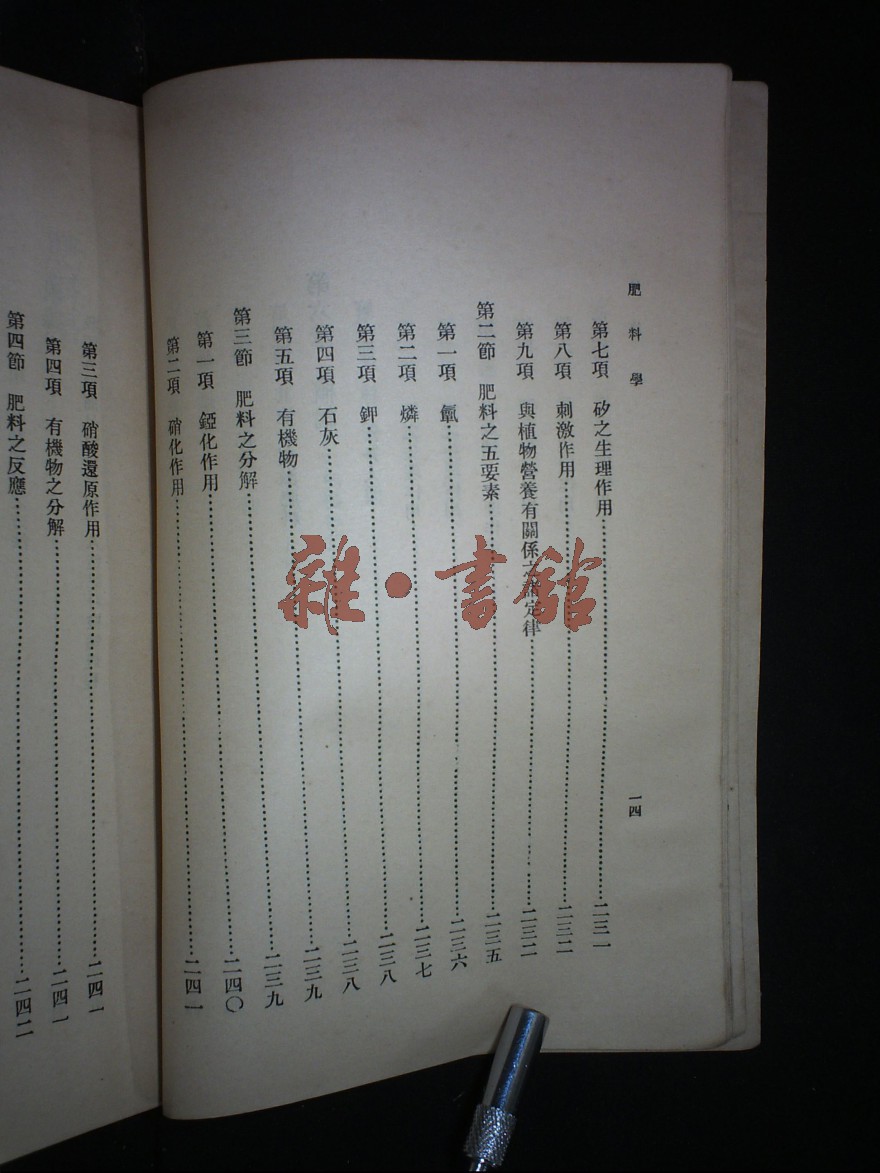 肥料學 一四
第七項 矽之生理作用……二三一
第八項 刺激作用……二三二
第九項 與植物營養有關係之諸定律……二三二
第二節 肥料之五要素……二三五
第一項 ……二三六
第二項 燐……二三七
第三項 鉀……二三八
第四項 石灰……二三八
第五項 有機物……二三九
第三節 肥料之分解……二三九
第一項 錏化作用……二四〇
第二項 硝化作用……二四一
第三項 硝酸還原作用……二四一
第四項 有機物之分解……二四一
第四節 肥料之反應……二四二
雜·書館